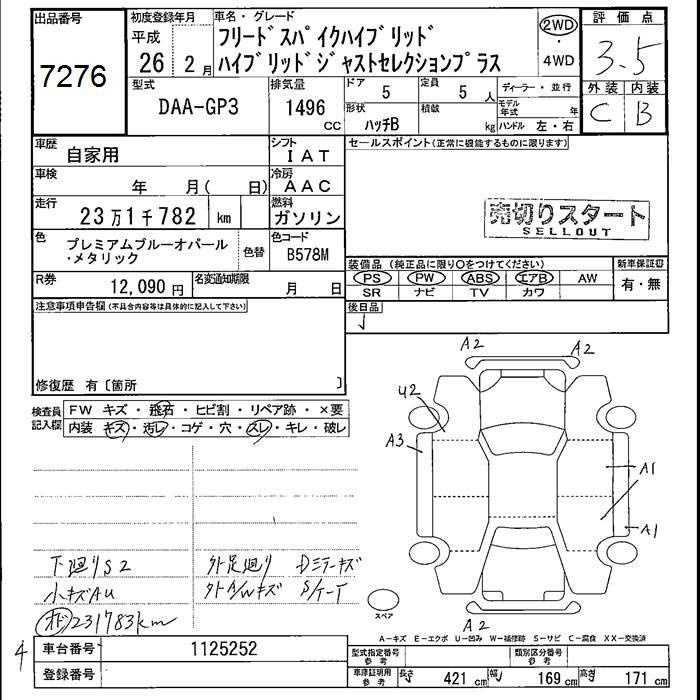 出品番号 7276
初度登録年月 平成 26 2月
車名・グレード
フリードスパイクハイブリッド
ハイブリッドジャストセレクションプラス
2WD
・
4WD
評価点
3.5
外装 内装
C B
型式 DAA-GP3
排気量 1496 CC
ドア 5
定員 5 人
形状 ハッチB
積載 kg
ディーラー・並行
モデル年式 年
ハンドル 左・右
車歴 自家用
シフト IAT
セールスポイント(正常に機能するものに限ります)
車検 年 月( 日)
冷房 AAC
走行 23万1千782 km
燃料 ガソリン
売切りスタート
SELLOUT
色 プレミアムブルーオパール
・メタリック
色替
色コード B578M
装備品 (純正品に限り○をつけてください)
PS PW ABS エアB AW
SR ナビ TV カワ
新車保証書
有・無
R券 12,090 円
名変通知期限 月 日
後日品
注意事項申告欄(不具合内容等は具体的に記入して下さい)
修復歴 有〔箇所 〕
検査員記入欄
FW キズ・飛石・ヒビ割・リペア跡・×要
内装 キズ・汚レ・コゲ・穴・スレ・キレ・破レ
A2
A2
U2
A3
A1
A1
A2
スペア
下廻りS2
小キズAU
オド231783km
外足廻り Dミラーキズ
外A/Wキズ
A-キズ E-エクボ U-凹み W-補修跡 S-サビ C-腐食 XX-交換済
4
車台番号 1125252
登録番号
型式指定番号 参考
類別区分番号 参考
車庫証明用 参考
長さ 421 cm
幅 169 cm
高さ 171 cm